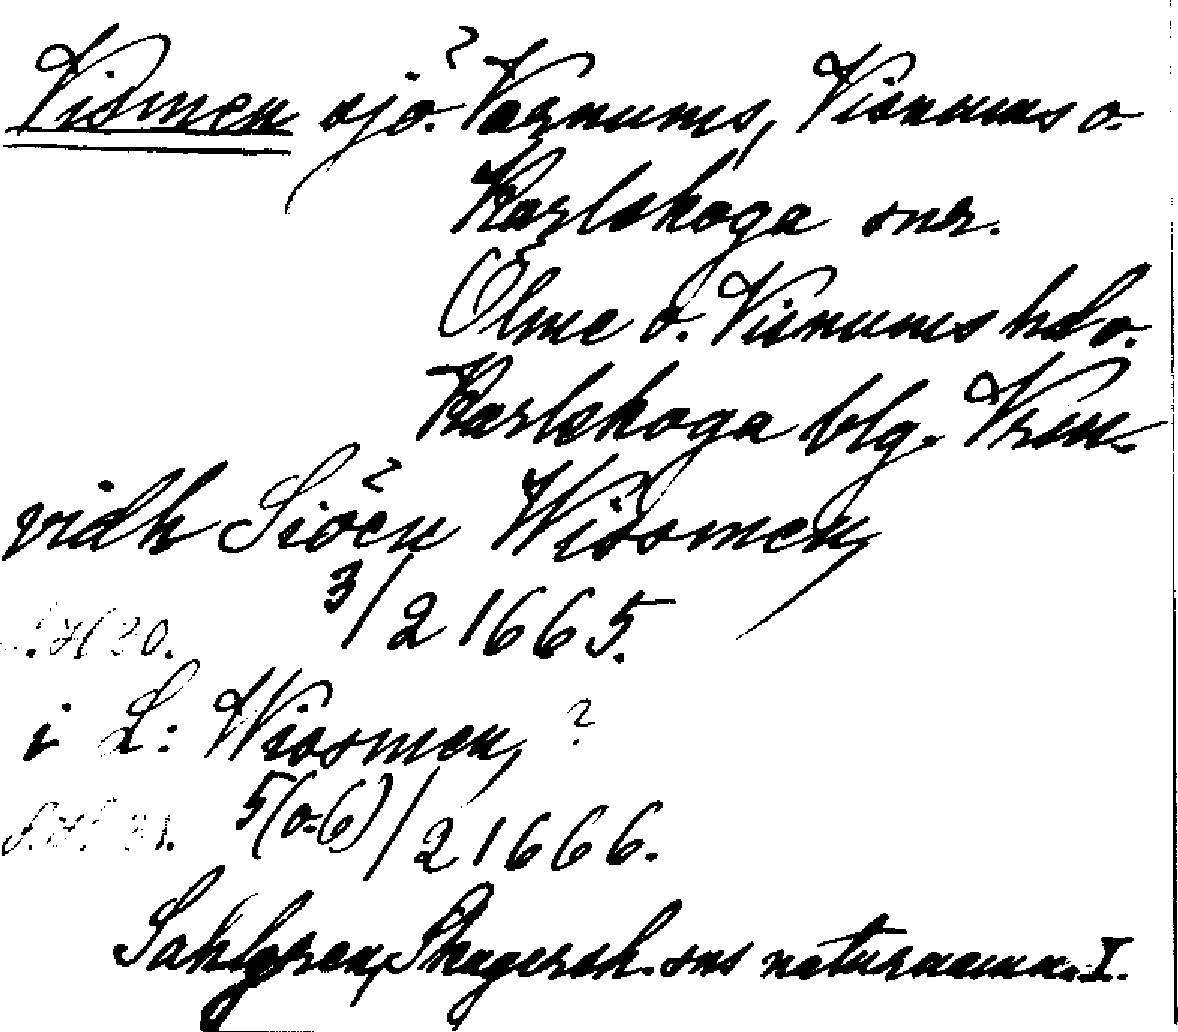 Vismen sjö. Varnums, Visnums o.
Karlskoga snr.
Ölme o. Visnums hd o.
Karlskoga blg. Vrml.
vidh Siöen Wissmen,
3/2 1665.
i L: Wissmen, ?
5(o-6)/2 1666.
Sahlgren, Skagersh. sns naturnamn. I.